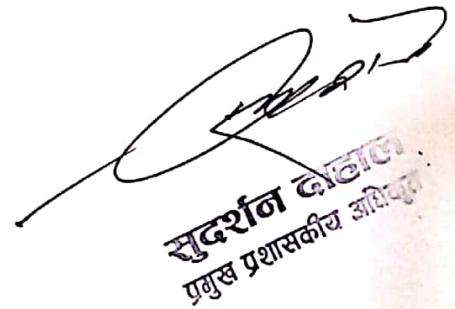 सुदर्शन दाहाल
प्रमुख प्रशासकीय अधिकृत